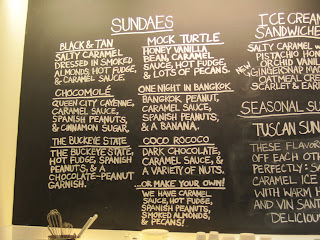 SUNDAES
BLACK & TAN
SALTY CARAMEL
DRESSED IN SMOKED
ALMONDS, HOT FUDGE,
& CARAMEL SAUCE.
CHOCOMOLÉ
QUEEN CITY CAYENNE,
CARAMEL SAUCE,
SPANISH PEANUTS,
& CINNAMON SUGAR.
THE BUCKEYE STATE
THE BUCKEYE STATE,
HOT FUDGE, SPANISH
PEANUTS, & A
CHOCOLATE-PEANUT
GARNISH.
MOCK TURTLE
HONEY VANILLA
BEAN, CARAMEL
SAUCE, HOT FUDGE,
& LOTS OF PECANS.
ONE NIGHT IN BANGKOK
BANGKOK PEANUT,
CARAMEL SAUCE,
SPANISH PEANUTS,
& A BANANA.
COCO ROCOCO
DARK CHOCOLATE,
CARAMEL SAUCE, &
A VARIETY OF NUTS.
...OR MAKE YOUR OWN!
WE HAVE CARAMEL
SAUCE, HOT FUDGE,
SPANISH PEANUTS,
SMOKED ALMONDS,
& PECANS!
ICE CREAM
SANDWICHE
SALTY CARAMEL
PISTACHIO HON
ORCHID VANILL
NEW
GINGERSNAP MAC
OATMEAL CREA
SCARLET & EAR
SEASONAL SU
TUSCAN SUN
THESE FLAVOR
OFF EACH OTHE
PERFECTLY: SA
CARAMEL ICE
WITH WARM H
AND VIN SANT
DELICIOU